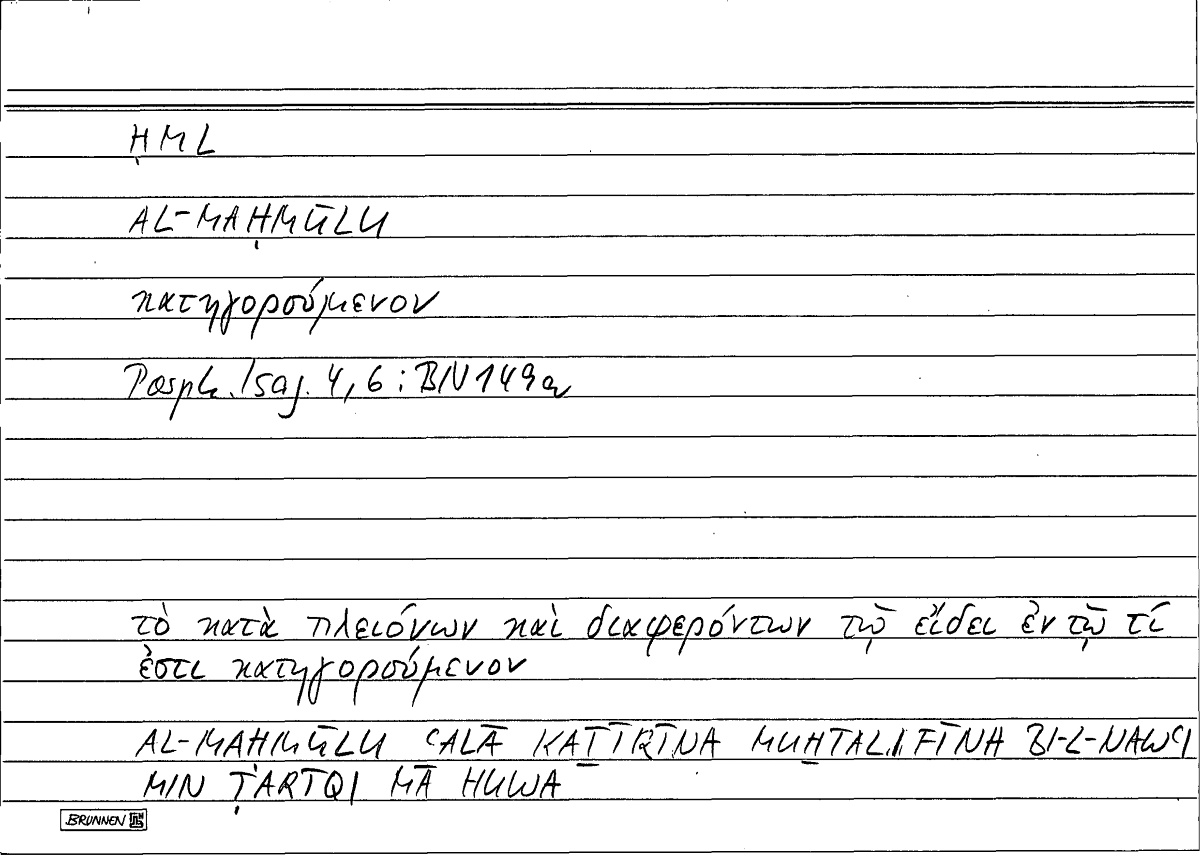 ḤML
AL-MAḤMŪLU
κατηγορούμενον
Porph. Isag. 4, 6 : BN 149a
τὸ κατὰ πλειόνων καὶ διαφερόντων τῷ εἴδει ἐν τῷ τί
ἐστι κατηγορούμενον
AL-MAHMŪLU ʿALĀ KAṮĪRĪNA MUḪTALIFĪNA BI-L-NAWʿI
MIN ṬARĪQI MĀ HUWA
BRUNNEN